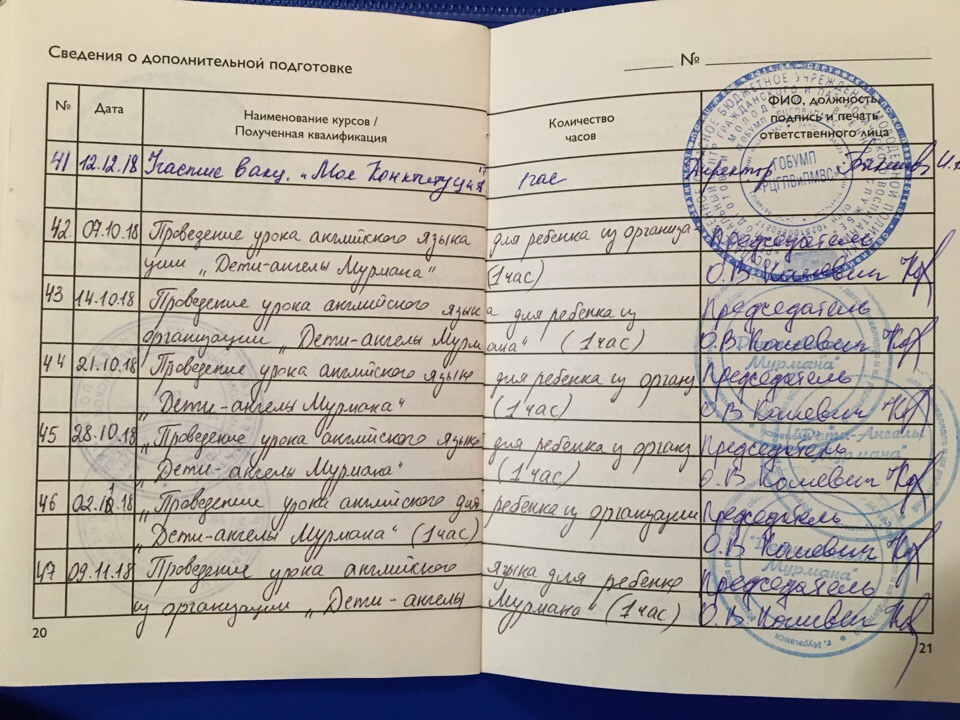 Сведения о дополнительной подготовке
№
№ Дата Наименование курсов / Полученная квалификация Количество часов ФИО, должность подпись и печать ответственного лица
41 12.12.18 „Моя Конституция" 1 час Директор
ГОБУМП
"РЦГПВиПМВС"
42 07.10.18 Проведение урока английского языка для ребенка из организа Председатель
ции „Дети-ангелы Мурмана" (1 час) О.В Колевич
43 14.10.18 Проведение урока английского языка для ребенка из Председатель
организации „Дети-ангелы Мурмана" (1 час) О.В Колевич
44 21.10.18 Проведение урока английского языка для ребенка из органи Председатель
„Дети-ангелы Мурмана" (1 час) О.В Колевич
45 28.10.18 „Проведение урока английского языка для ребенка из органи Председатель
„Дети-ангелы Мурмана" (1 час) О.В Колевич
46 02.11.18 „Проведение урока английского для ребенка из организации Председатель
„Дети-ангелы Мурмана" (1 час) О.В Колевич
47 09.11.18 Проведение урока английского языка для ребенка Председатель
из организации „Дети-ангелы Мурмана" (1 час) О.В Колевич
"Дети-Ангелы Мурмана"
г. Мурманск
20
21